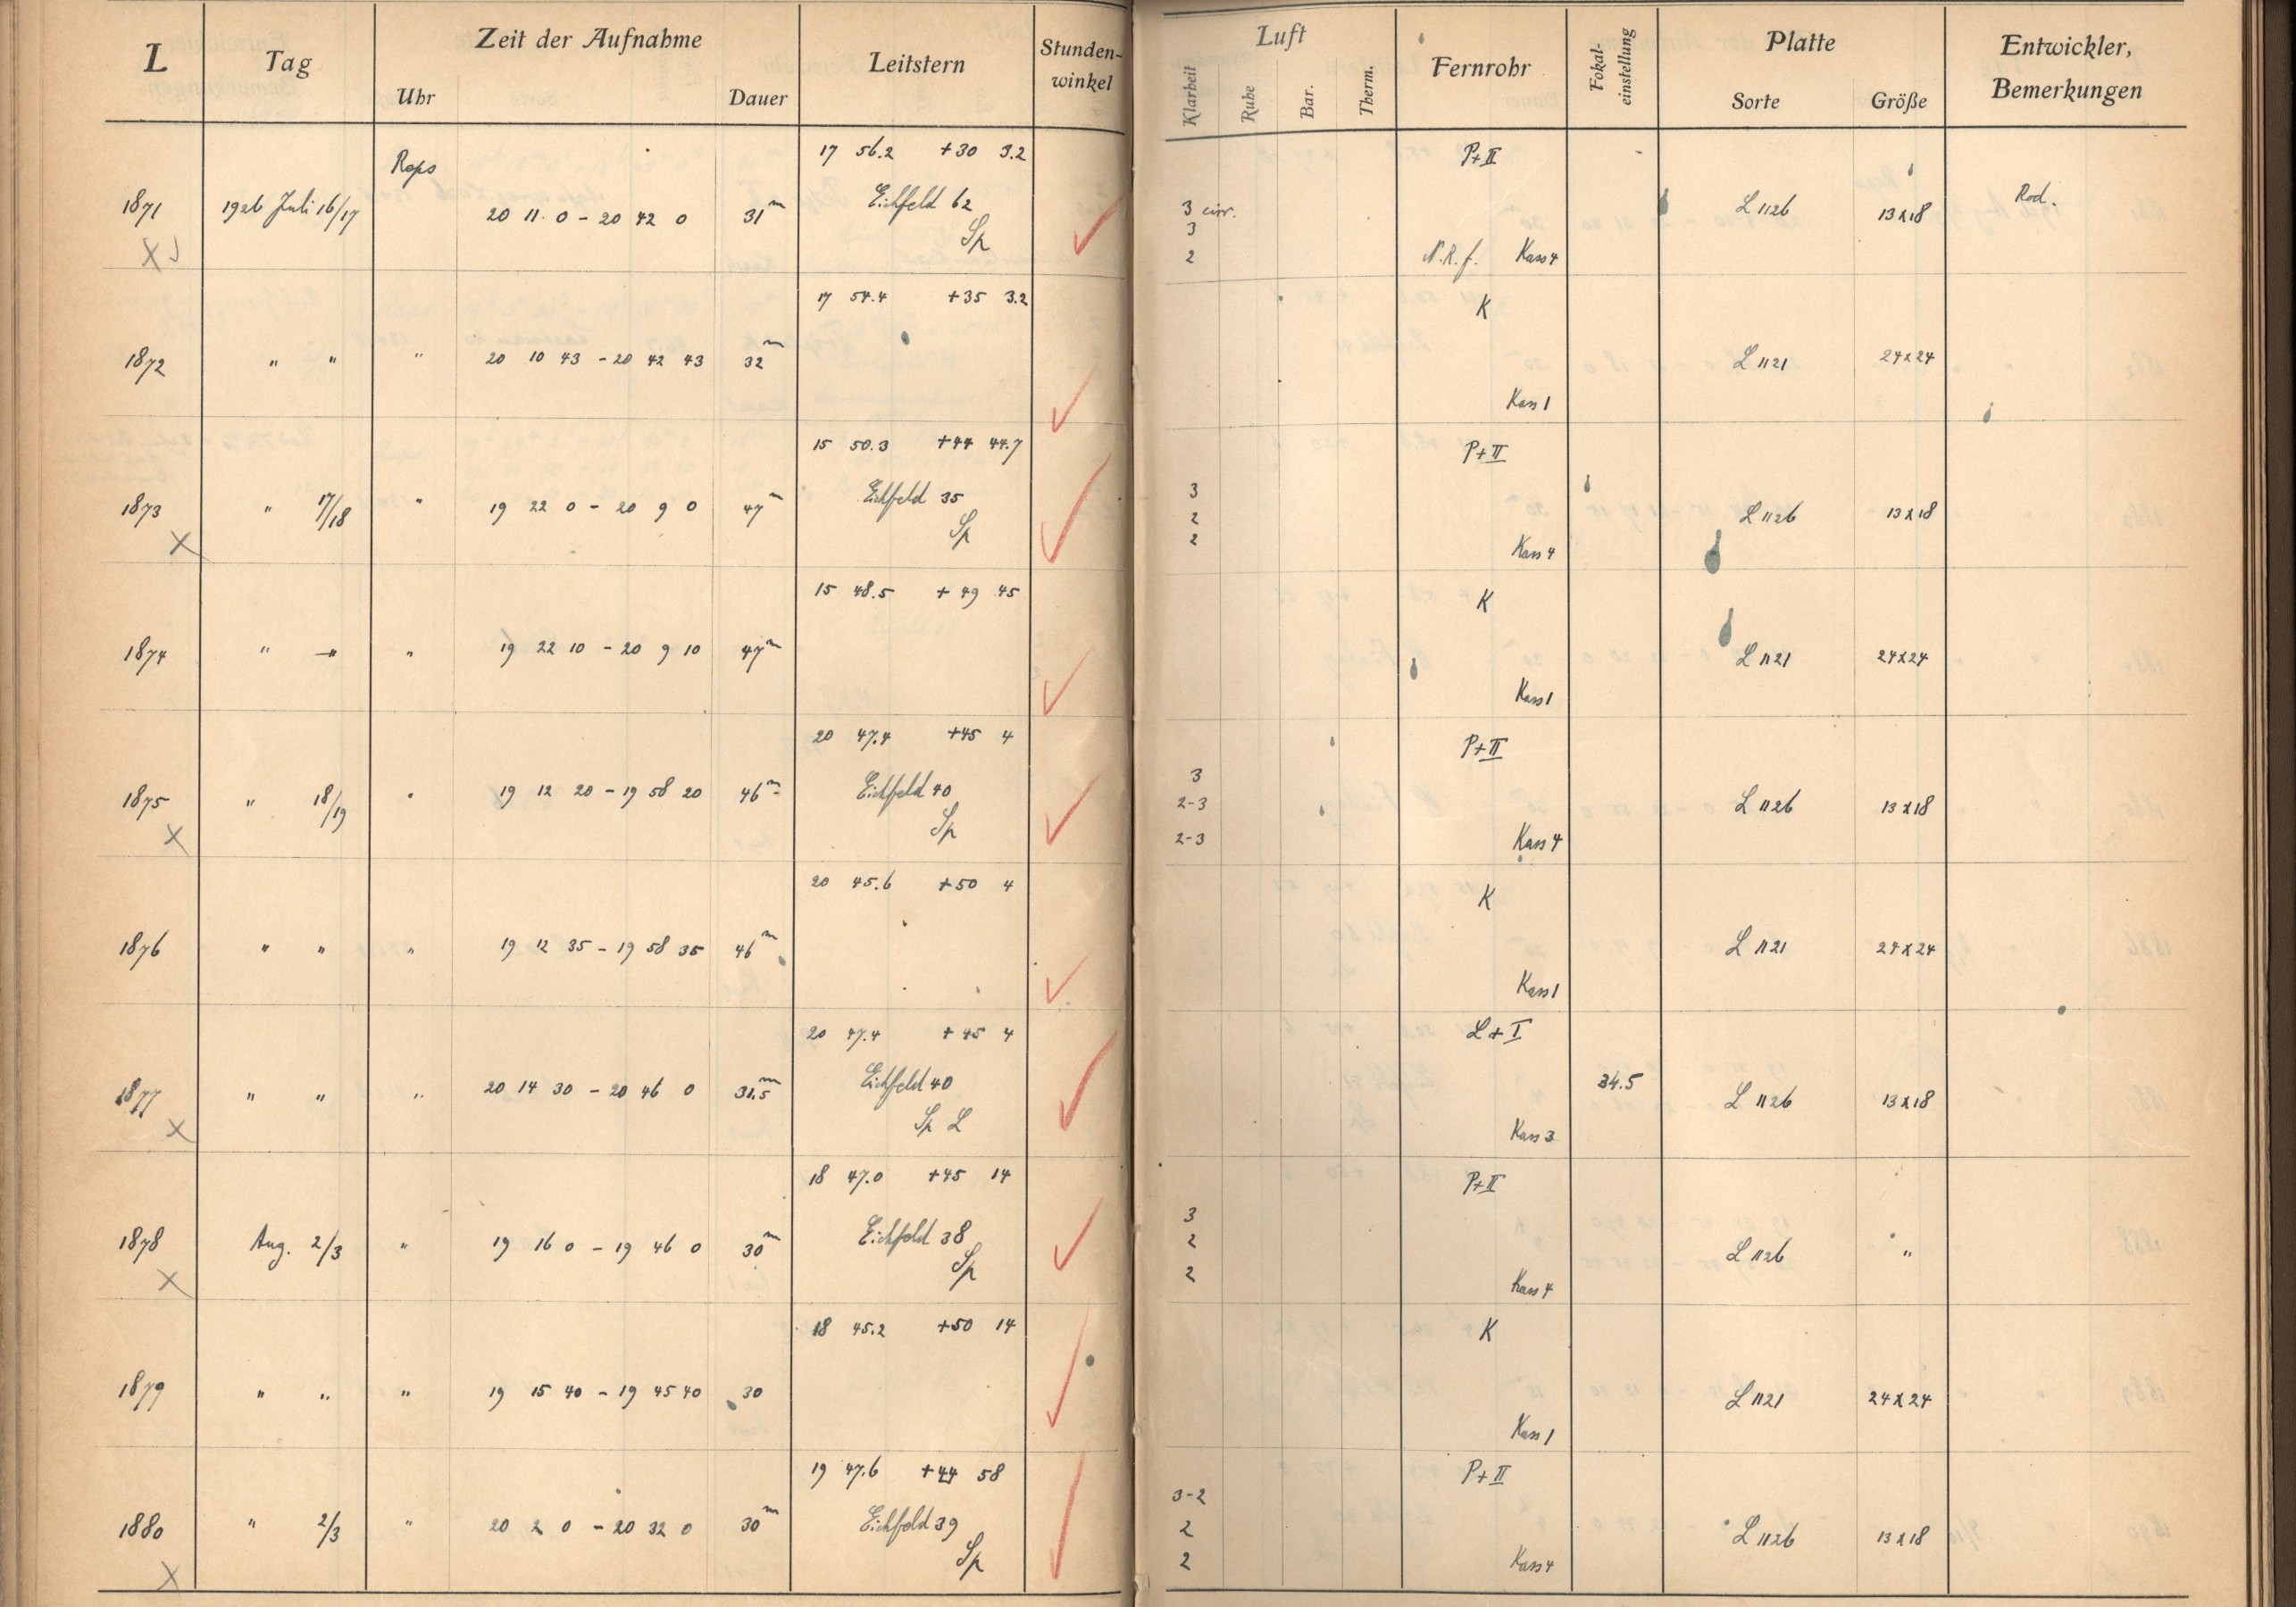 L Tag Zeit der Aufnahme Leitstern Stunden-winkel Luft Fernrohr Fokal-einstellung Platte Entwickler, Bemerkungen
Uhr Dauer Klarheit Ruhe Bar. Therm. Sorte Größe
Reps 17 56.2 +30 3.2 P+II
1871 1926 Juli 16/17 20 11 0 – 20 42 0 31m Eichfeld 62 3 cirr. L 1126 13x18 Rod.
Sp 3
X 2 N.R.f. Kass 4
17 54.4 +35 3.2 K
1872 " " " 20 10 43 – 20 42 43 32m L 1121 24x24
Kass 1
15 50.3 +44 44.7 P+II
1873 " 17/18 " 19 22 0 – 20 9 0 47m Eichfeld 35 3 L 1126 13x18
Sp 2
X 2 Kass 4
15 48.5 +49 45 K
1874 " " " 19 22 10 – 20 9 10 47m L 1121 24x24
Kass 1
20 47.4 +45 4 P+II
1875 " 18/19 " 19 12 20 – 19 58 20 46m Eichfeld 40 3 L 1126 13x18
Sp 2-3
X 2-3 Kass 4
20 45.6 +50 4 K
1876 " " " 19 12 35 – 19 58 35 46m L 1121 24x24
Kass 1
20 47.4 +45 4 L+I
1877 " " " 20 14 30 – 20 46 0 31.5m Eichfeld 40 34.5 L 1126 13x18
X Sp L Kass 3
18 47.0 +45 14 P+II
1878 Aug. 2/3 " 19 16 0 – 19 46 0 30m Eichfeld 38 3 L 1126 "
Sp 2
X 2 Kass 4
18 45.2 +50 14 K
1879 " " " 19 15 40 – 19 45 40 30 L 1121 24x24
Kass 1
19 47.6 +44 58 P+II
1880 " 2/3 " 20 2 0 – 20 32 0 30m Eichfeld 39 3-2 L 1126 13x18
Sp 2
X 2 Kass 4